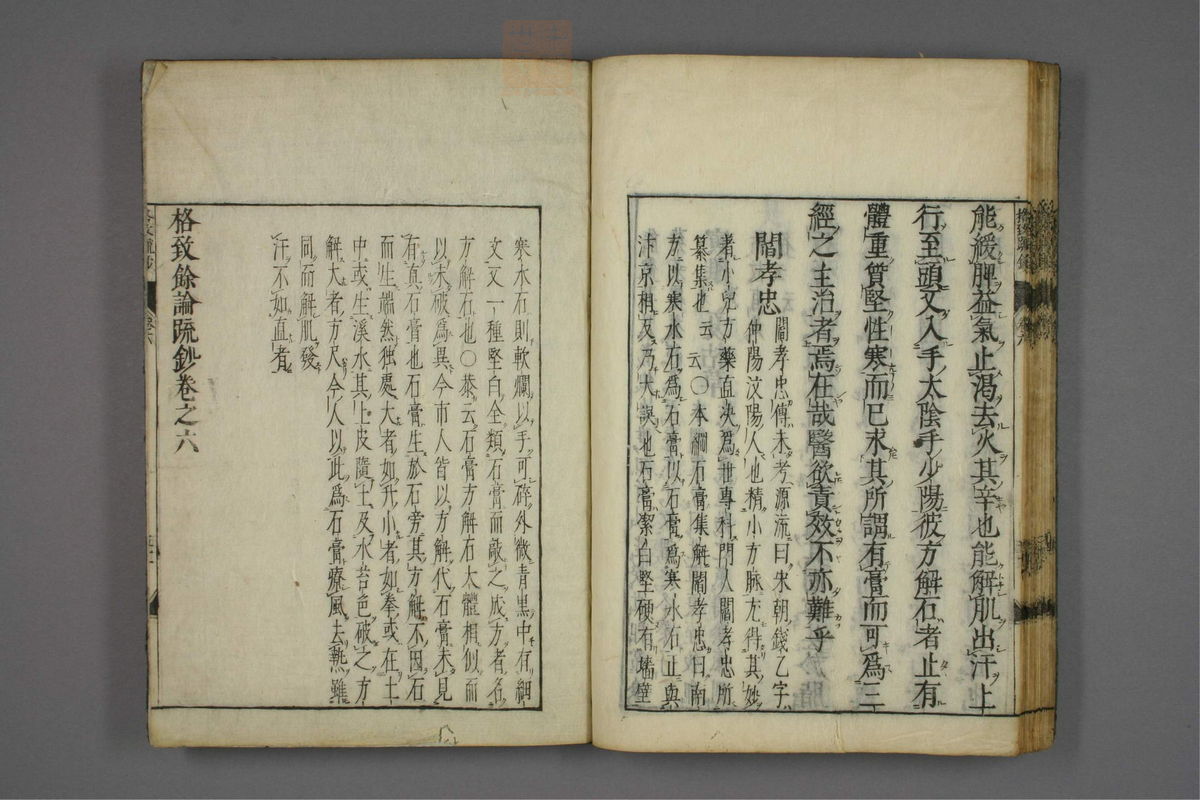 能緩脾益氣止渴去火其辛也能解肌出汗上
行至頭又入手太陰手少陽彼方解石者止有
體重質堅性寒而已求其所謂有膏而可爲三
經之主治者焉在哉醫欲責效不亦難乎
閻孝忠
閻孝忠傳未考源流曰宋朝錢乙字
仲陽汶陽人也精小方脉尤得其妙
者小兒方藥直决爲世專科門人閻孝忠所
纂集也云云〇本綱石膏集解閻孝忠曰南
方以寒水石爲石膏以石膏爲寒水石正與
汴京相反乃大誤也石膏潔白堅硬有墻壁
寒水石則軟爛以手可碎外微青黒中有細
文又一種堅白全類石膏而敲之成方者名
方解石也〇恭云石膏方解石大體相似而
以未破爲異今市人皆以方解代石膏未見
有真石膏也石膏生於石旁其方解不因石
而生端然独處大者如升小者如拳或在土
中或生溪水其上皮隨土及水苔色破之方
解大者方尺今人以此爲石膏療風去熱雖
同而解肌發
汗不如真者
格致餘論疏鈔卷之六